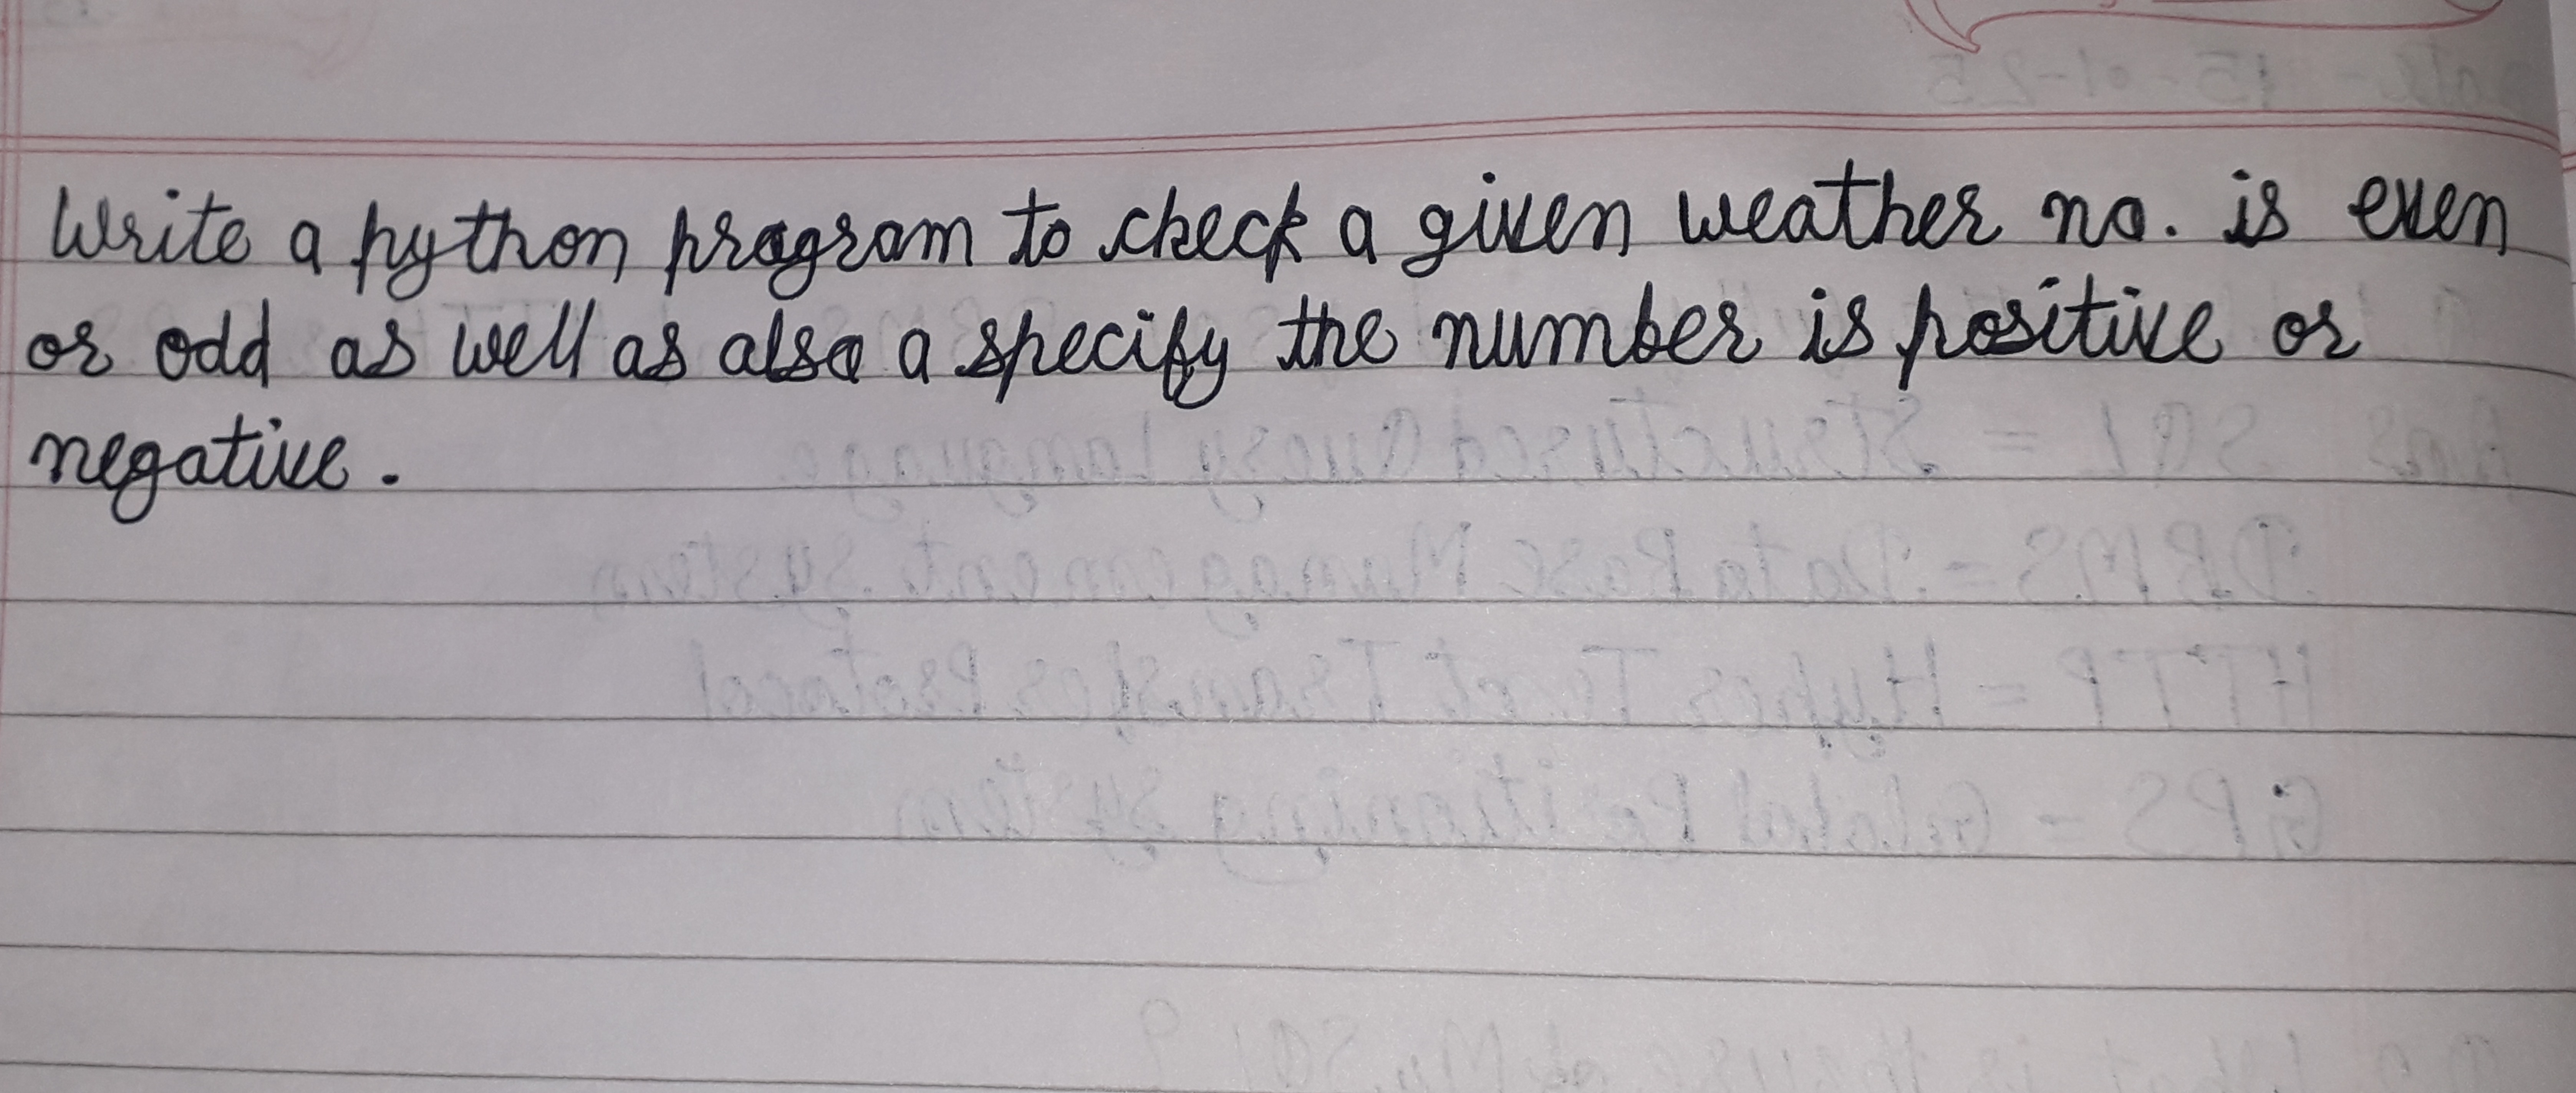 Write a python program to check a given weather no. is even
or odd as well as also a specify the number is positive or
negative.